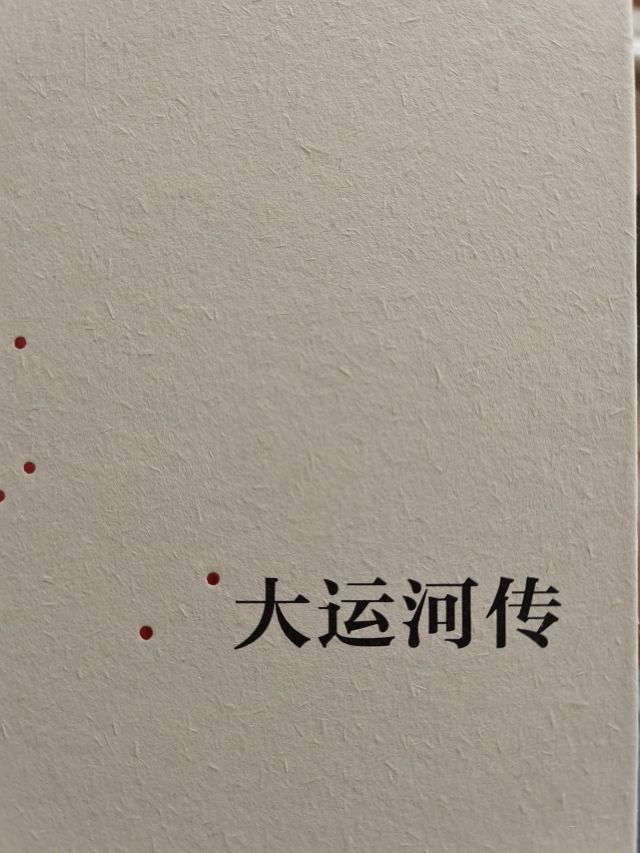 大运河传